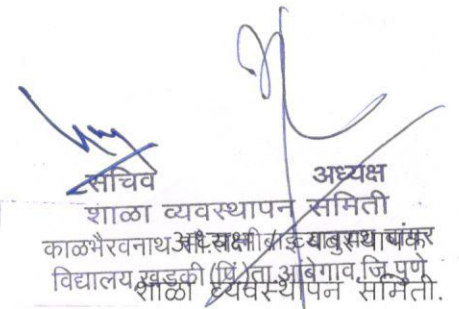 सचिव अध्यक्ष
शाळा व्यवस्थापन समिती
काळभैरवनाथ
विद्यालय, खडकी (पिं.) ता. आंबेगाव, जि. पुणे
अध्यक्ष /
शाळा व्यवस्थापन समिती.